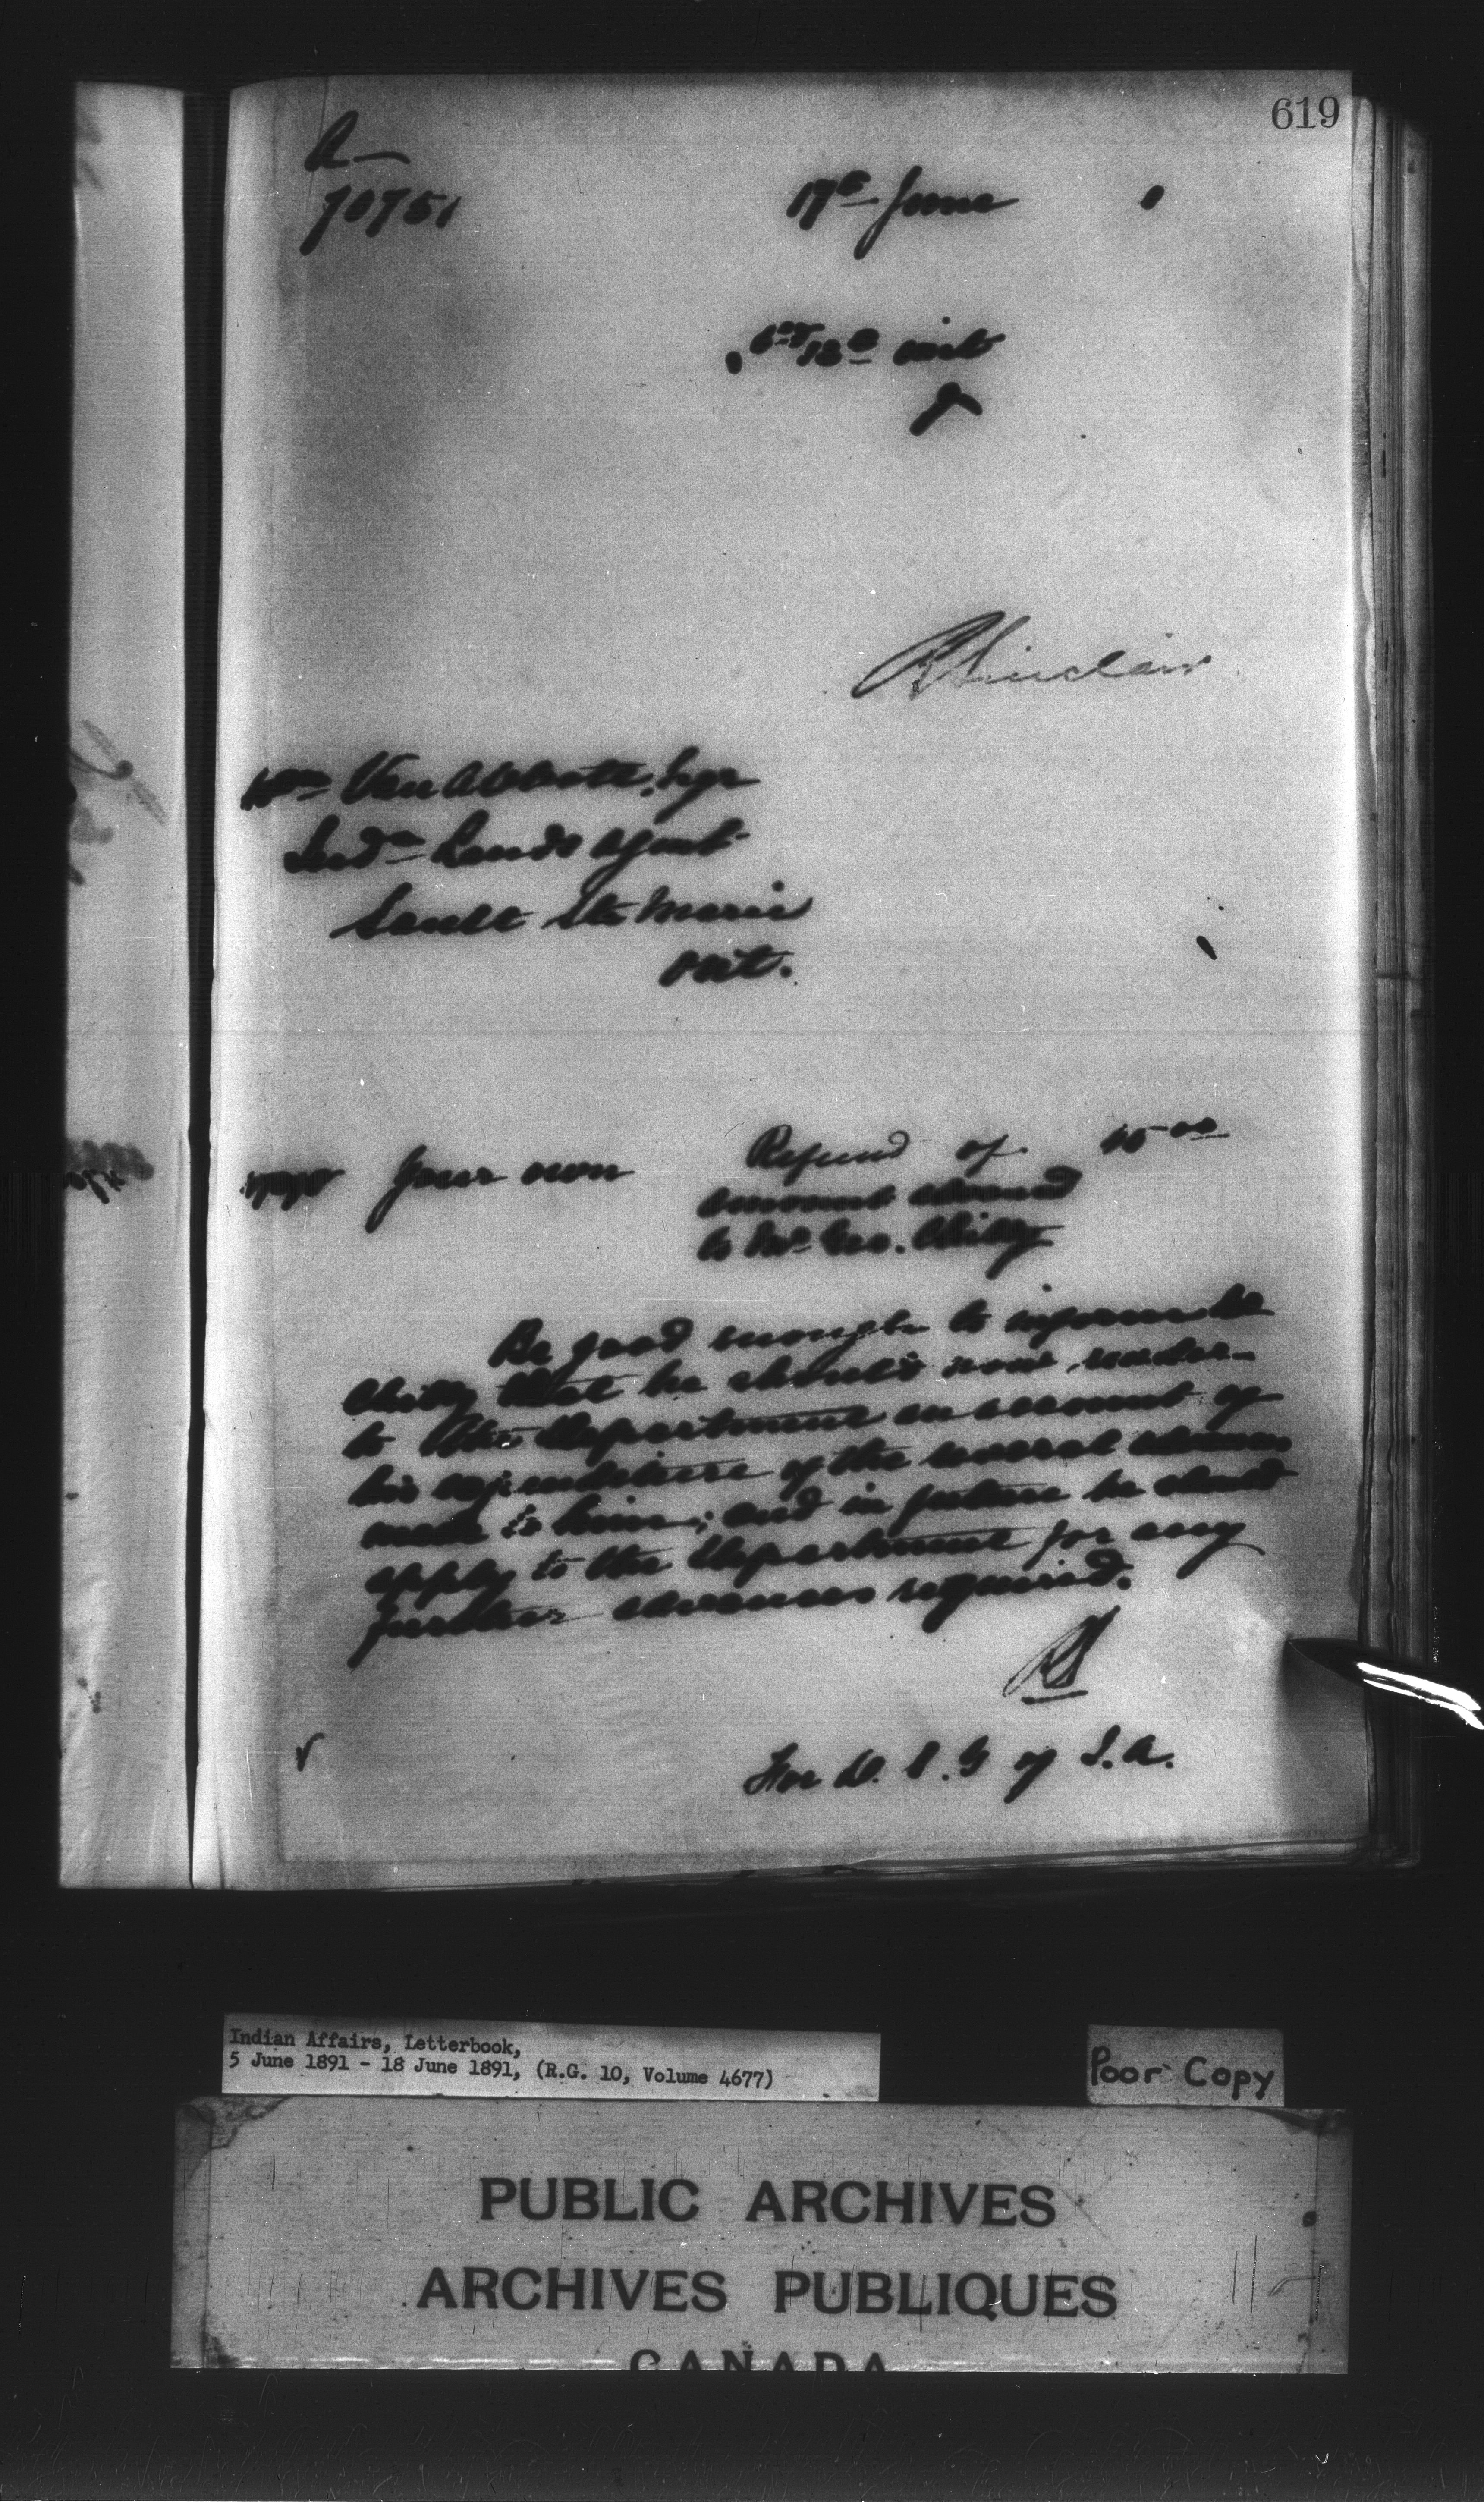 619
A—
70751
17th June 1
1st & 12th inst
R Sinclair
Wm Van Abbott, Esqr
Indn Lands Agent
Sault Ste Marie
Ont.
Refund of 15 00
your own
amount advanced
to Mr Geo. Chitty
Be good enough to inform Mr
Chitty that he should now render
to the Department an account of
his expenditure of the several advances
made to him; and in future he should
apply to the Department for any
further advances required.
RS
For D. S. G of I. A.
Indian Affairs, Letterbook,
5 June 1891 - 18 June 1891, (R.G. 10, Volume 4677)
Poor Copy
PUBLIC ARCHIVES
ARCHIVES PUBLIQUES
CANADA